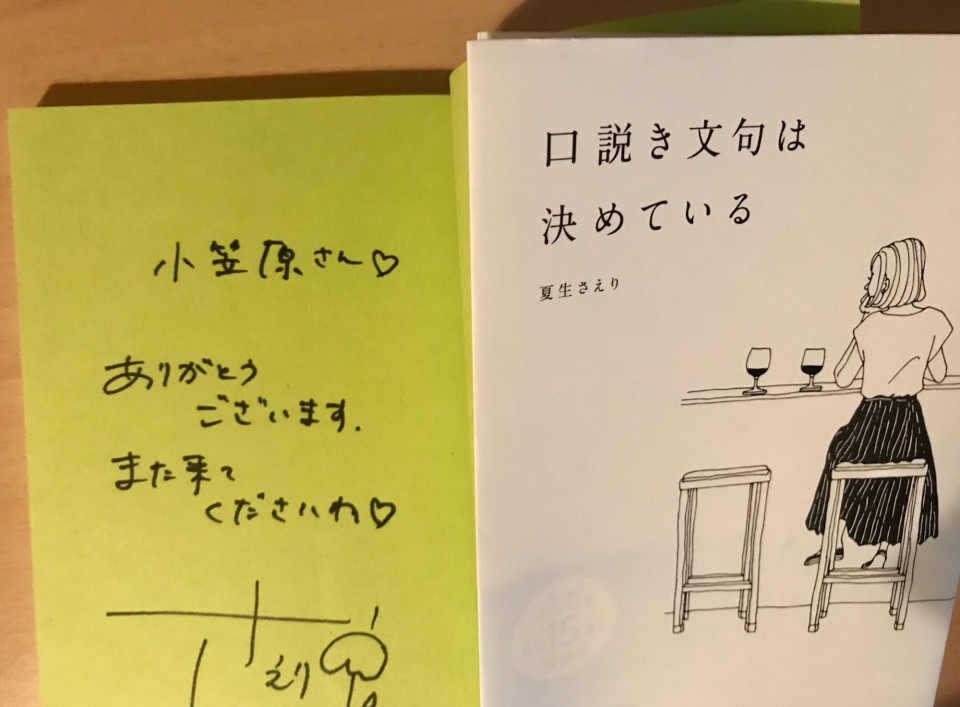 小笠原さん♡
ありがとう
ございます.
また来て
くださいね♡
さえり
口説き文句は
決めている
夏生さえり
15